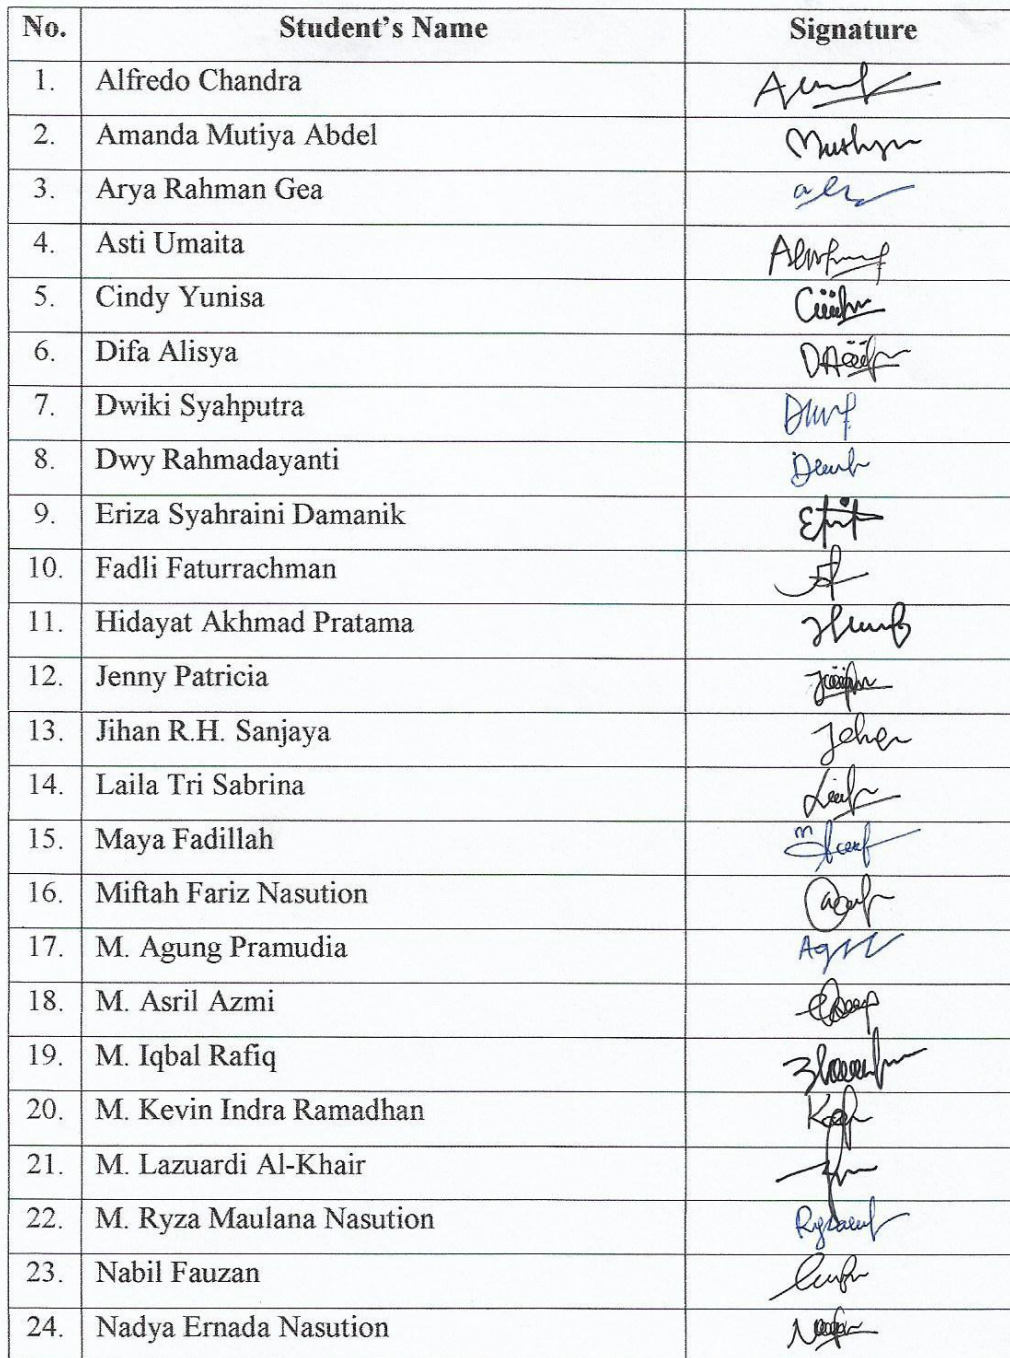 No. Student's Name Signature
1. Alfredo Chandra
2. Amanda Mutiya Abdel
3. Arya Rahman Gea
4. Asti Umaita
5. Cindy Yunisa
6. Difa Alisya
7. Dwiki Syahputra
8. Dwy Rahmadayanti
9. Eriza Syahraini Damanik
10. Fadli Faturrachman
11. Hidayat Akhmad Pratama
12. Jenny Patricia
13. Jihan R.H. Sanjaya
14. Laila Tri Sabrina
15. Maya Fadillah
16. Miftah Fariz Nasution
17. M. Agung Pramudia
18. M. Asril Azmi
19. M. Iqbal Rafiq
20. M. Kevin Indra Ramadhan
21. M. Lazuardi Al-Khair
22. M. Ryza Maulana Nasution
23. Nabil Fauzan
24. Nadya Ernada Nasution